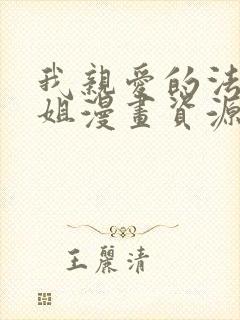 我親愛的法
姐漫畫資源
王麗清